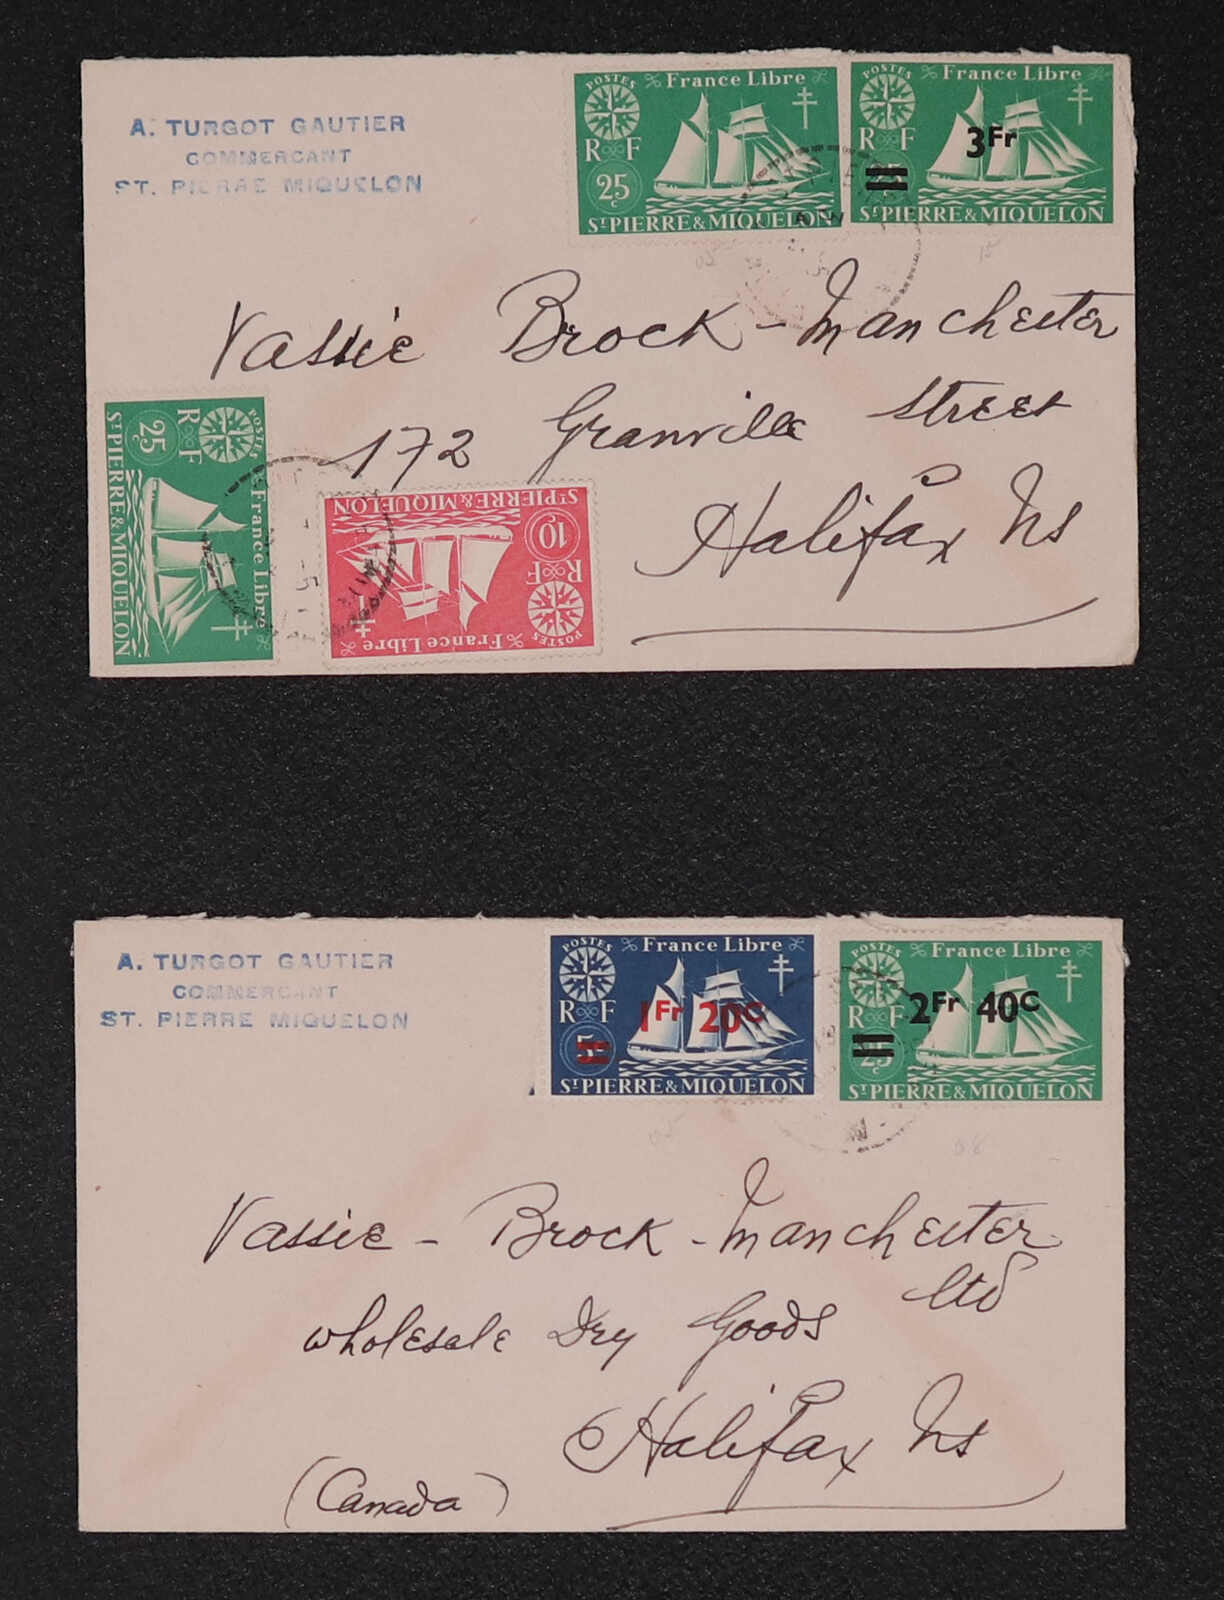 A. TURGOT GAUTIER
COMMERCANT
ST. PIERRE MIQUELON
POSTES France Libre
RF
25c
ST PIERRE & MIQUELON
POSTES France Libre
RF 3Fr
25c
ST PIERRE & MIQUELON
Vassie Brock - Manchester
172 Granville Street
Halifax Ns
POSTES France Libre
RF
25c
ST PIERRE & MIQUELON
POSTES France Libre
RF
10c
ST PIERRE & MIQUELON
A. TURGOT GAUTIER
COMMERCANT
ST. PIERRE MIQUELON
POSTES France Libre
RF 1Fr 20c
5c
ST PIERRE & MIQUELON
POSTES France Libre
RF 2Fr 40c
25c
ST PIERRE & MIQUELON
Vassie - Brock - Manchester
Ltd
wholesale Dry Goods
Halifax Ns
(Canada)